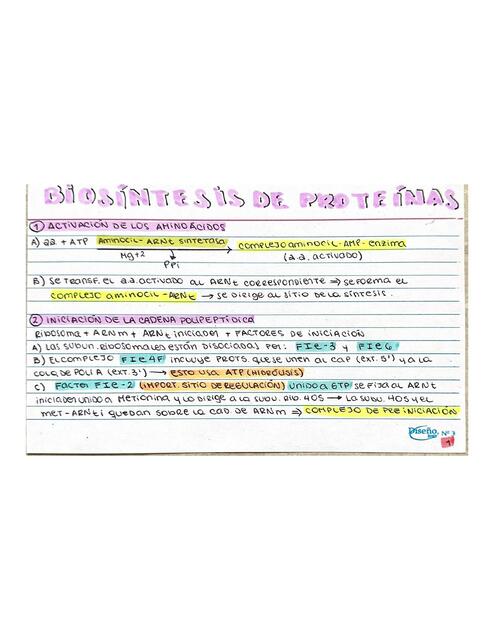 BIOSÍNTESIS DE PROTEÍNAS
① ACTIVACIÓN DE LOS AMINOÁCIDOS
A) a.a. + ATP AMINOCIL-ARNt SINTETASA COMPLEJO AMINOCIL-AMP-ENZIMA
Mg+2 (a.a. ACTIVADO)
PPi
B) SE TRANSF. EL a.a. ACTIVADO AL ARNt CORRESPONDIENTE ⇒ SE FORMA EL
COMPLEJO AMINOCIL-ARNt → SE DIRIGE AL SITIO DE LA SÍNTESIS.
② INICIACIÓN DE LA CADENA POLIPEPTÍDICA
RIBOSOMA + ARNm + ARNt INICIADOR + FACTORES DE INICIACIÓN
A) LAS SUBUN. RIBOSOMALES ESTÁN DISOCIADAS POR: FIE-3 Y FIE6
B) EL COMPLEJO FIE4F INCLUYE PROTS. QUE SE UNEN AL CAP (EXT. 5') Y A LA
COLA DE POLI A (EXT. 3') → ESTO USA ATP (HIDRÓLISIS)
C) FACTOR FIE-2 (IMPORT. SITIO DE REGULACIÓN) UNIDO A GTP SE FIJA AL ARNt
INICIADOR UNIDO A METIONINA Y LO DIRIGE A LA SUBU. RIB. 40S → LA SUBU. 40S Y EL
MET-ARNti QUEDAN SOBRE LA CAD. DE ARNm ⇒ COMPLEJO DE PREINICIACIÓN
Diseño. Nº 3
1